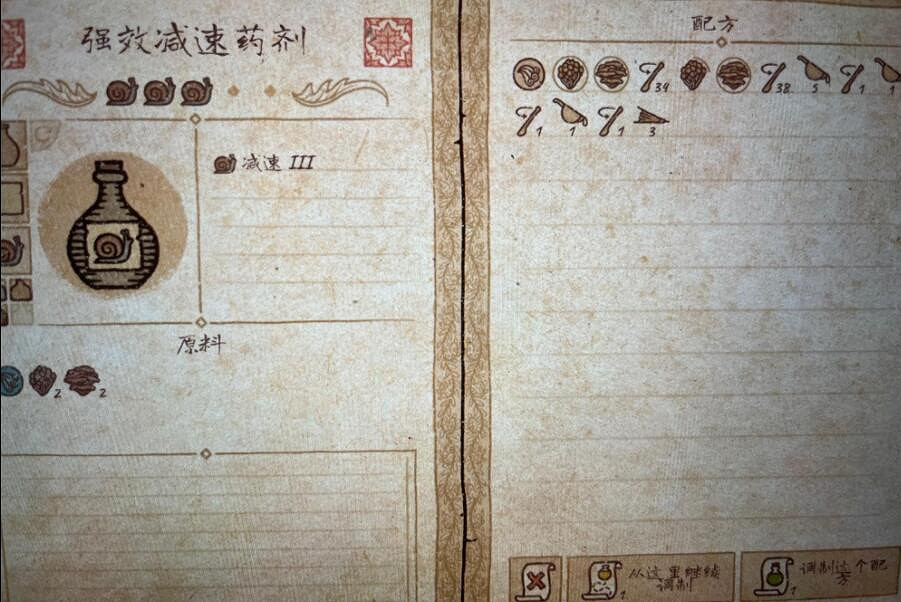 强效减速药剂
减速 III
原料
2 2
配方
34 38 5 1 1
1 1 1 3
从这里继续调制
1
调制这个配方
1